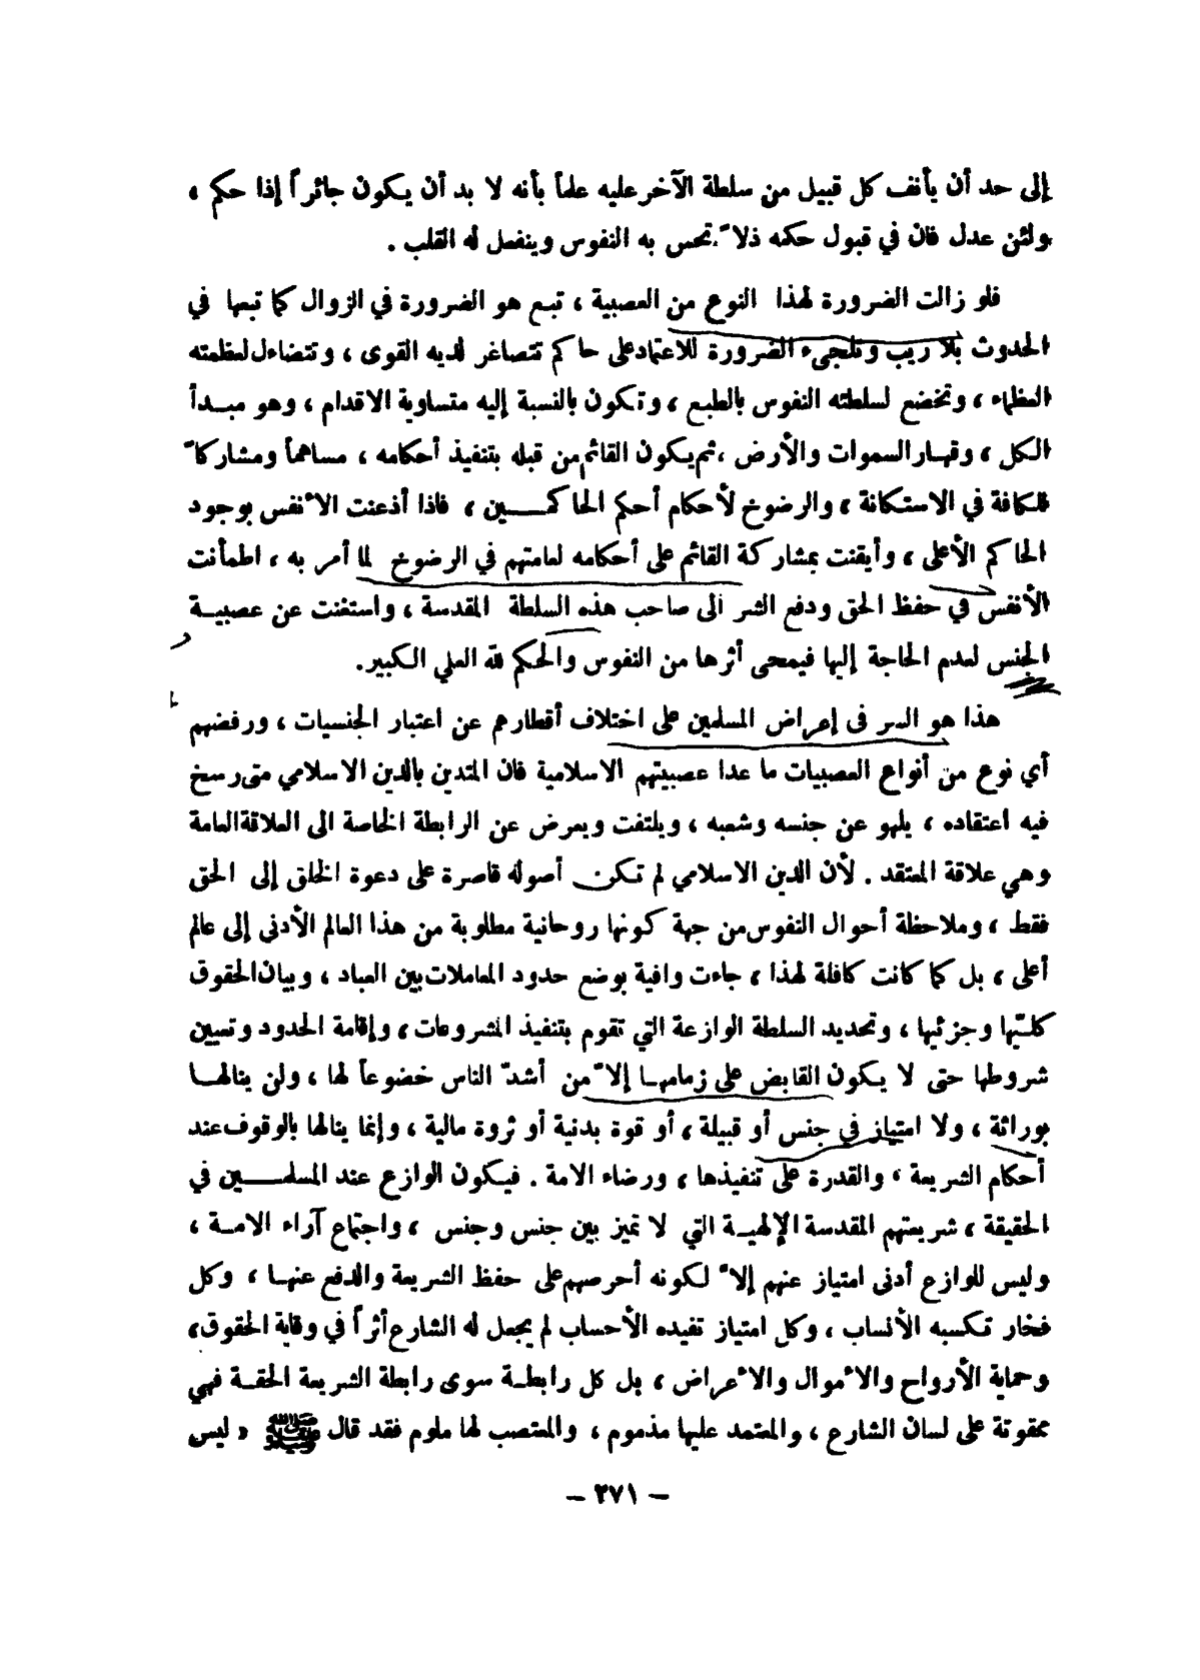 إلى حد أن يأنف كل قبيل من سلطة الآخر عليه علماً بأنه لا بد أن يكون جائراً إذا حكم ،
ولئن عدل فان في قبول حكمه ذلاّ تحس به النفوس وينفعل له القلب .
فلو زالت الضرورة لهذا النوع من العصبية ، تبع هو الضرورة في الزوال كما تبعها في
الحدوث بلا ريب وتلجىء الضرورة للاعتماد على حاكم تتصاغر لديه القوى ، وتتضاءل لعظمته
العظماء ، وتخضع لسلطته النفوس بالطبع ، وتكون بالنسبة إليه متساوية الاقدام ، وهو مبدأ
الكل ، وقهار السموات والأرض ، ثم يكون القائم من قبله بتنفيذ أحكامه ، مساهماً ومشاركاّ
للكافة في الاستكانة ، والرضوخ لأحكام أحكم الحاكمين ، فاذا أذعنت الأنفس بوجود
الحاكم الأعلى ، وأيقنت بمشاركة القائم على أحكامه لعامتهم في الرضوخ لما أمر به ، اطمأنت
الأنفس في حفظ الحق ودفع الشر الى صاحب هذه السلطة المقدسة ، واستغنت عن عصبية
الجنس لعدم الحاجة إليها فيمحى أثرها من النفوس والحكم لله العلي الكبير.
هذا هو السر فى إعراض المسلمين على اختلاف أقطارهم عن اعتبار الجنسيات ، ورفضهم
أي نوع من أنواع العصبيات ما عدا عصبيتهم الاسلامية فان المتدين بالدين الاسلامي متى رسخ
فيه اعتقاده ، يلهو عن جنسه وشعبه ، ويلتفت ويعرض عن الرابطة الخاصة الى العلاقة العامة
وهي علاقة المعتقد . لأن الدين الاسلامي لم تكن أصوله قاصرة على دعوة الخلق إلى الحق
فقط ، وملاحظة أحوال النفوس من جهة كونها روحانية مطلوبة من هذا العالم الأدنى إلى عالم
أعلى ، بل كما كانت كافلة لهذا ، جاءت وافية بوضع حدود المعاملات بين العباد ، وبيان الحقوق
كلّيها وجزئيها ، وتحديد السلطة الوازعة التي تقوم بتنفيذ المشروعات ، وإقامة الحدود وتعيين
شروطها حتى لا يكون القابض على زمامها إلاّ من أشدّ الناس خضوعاً لها ، ولن ينالها
بوراثة ، ولا امتياز في جنس أو قبيلة ، أو قوة بدنية أو ثروة مالية ، وإنما ينالها بالوقوف عند
أحكام الشريعة ، والقدرة على تنفيذها ، ورضاء الامة . فيكون الوازع عند المسلمين في
الحقيقة ، شريعتهم المقدسة الإلهية التي لا تميز بين جنس وجنس ، واجتماع آراء الامة ،
وليس للوازع أدنى امتياز عنهم إلاّ لكونه أحرصهم على حفظ الشريعة والدفع عنها ، وكل
فخار تكسبه الأنساب ، وكل امتياز تفيده الأحساب لم يجعل له الشارع أثراً في وقاية الحقوق،
وحماية الأرواح والأموال والأعراض ، بل كل رابطة سوى رابطة الشريعة الحقة فهي
ممقوتة على لسان الشارع ، والمعتمد عليها مذموم ، والمتعصب لها ملوم فقد قال ﷺ « ليس
– ٢٧١ –